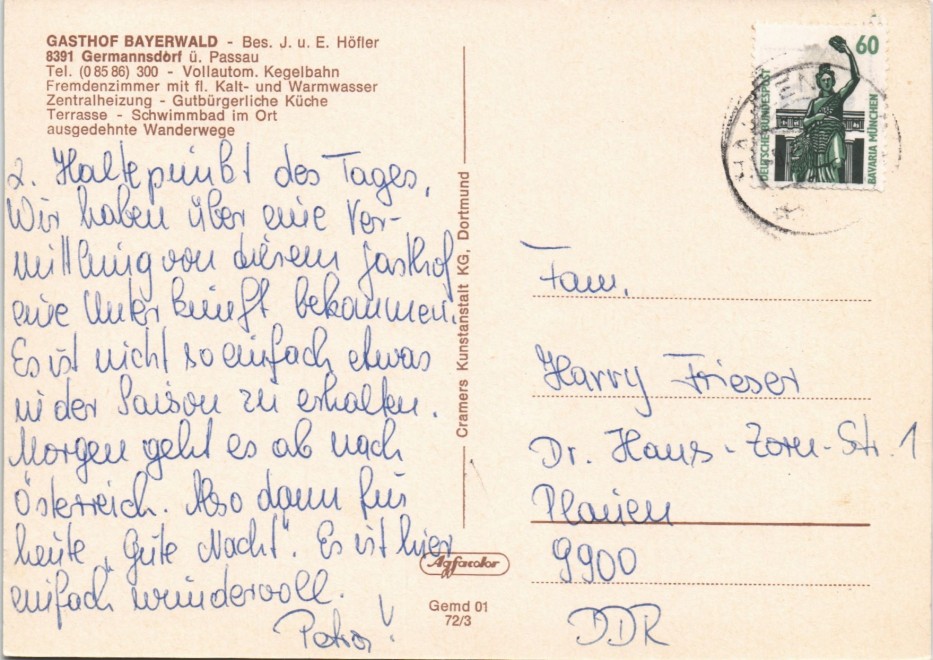 GASTHOF BAYERWALD - Bes. J. u. E. Höfler
8391 Germannsdorf ü. Passau
Tel. (0 85 86) 300 - Vollautom. Kegelbahn
Fremdenzimmer mit fl. Kalt- und Warmwasser
Zentralheizung - Gutbürgerliche Küche
Terrasse - Schwimmbad im Ort
ausgedehnte Wanderwege
2. Haltepunkt des Tages,
Wir haben über eine Ver-
mittlung von diesem Gasthof
eine Unterkunft bekommen.
Es ist nicht so einfach etwas
in der Saison zu erhalten.
Morgen geht es ab nach
Österreich. Also dann für
heute „Gute Nacht". Es ist hier
einfach wundervoll.
Petra!
Cramers Kunstanstalt KG, Dortmund
Agfacolor
Gemd 01
72/3
60
DEUTSCHE BUNDESPOST
BAVARIA MÜNCHEN
Fam.
Harry Frieser
Dr. Hans-Zorn-Str. 1
Plauen
9900
DDR